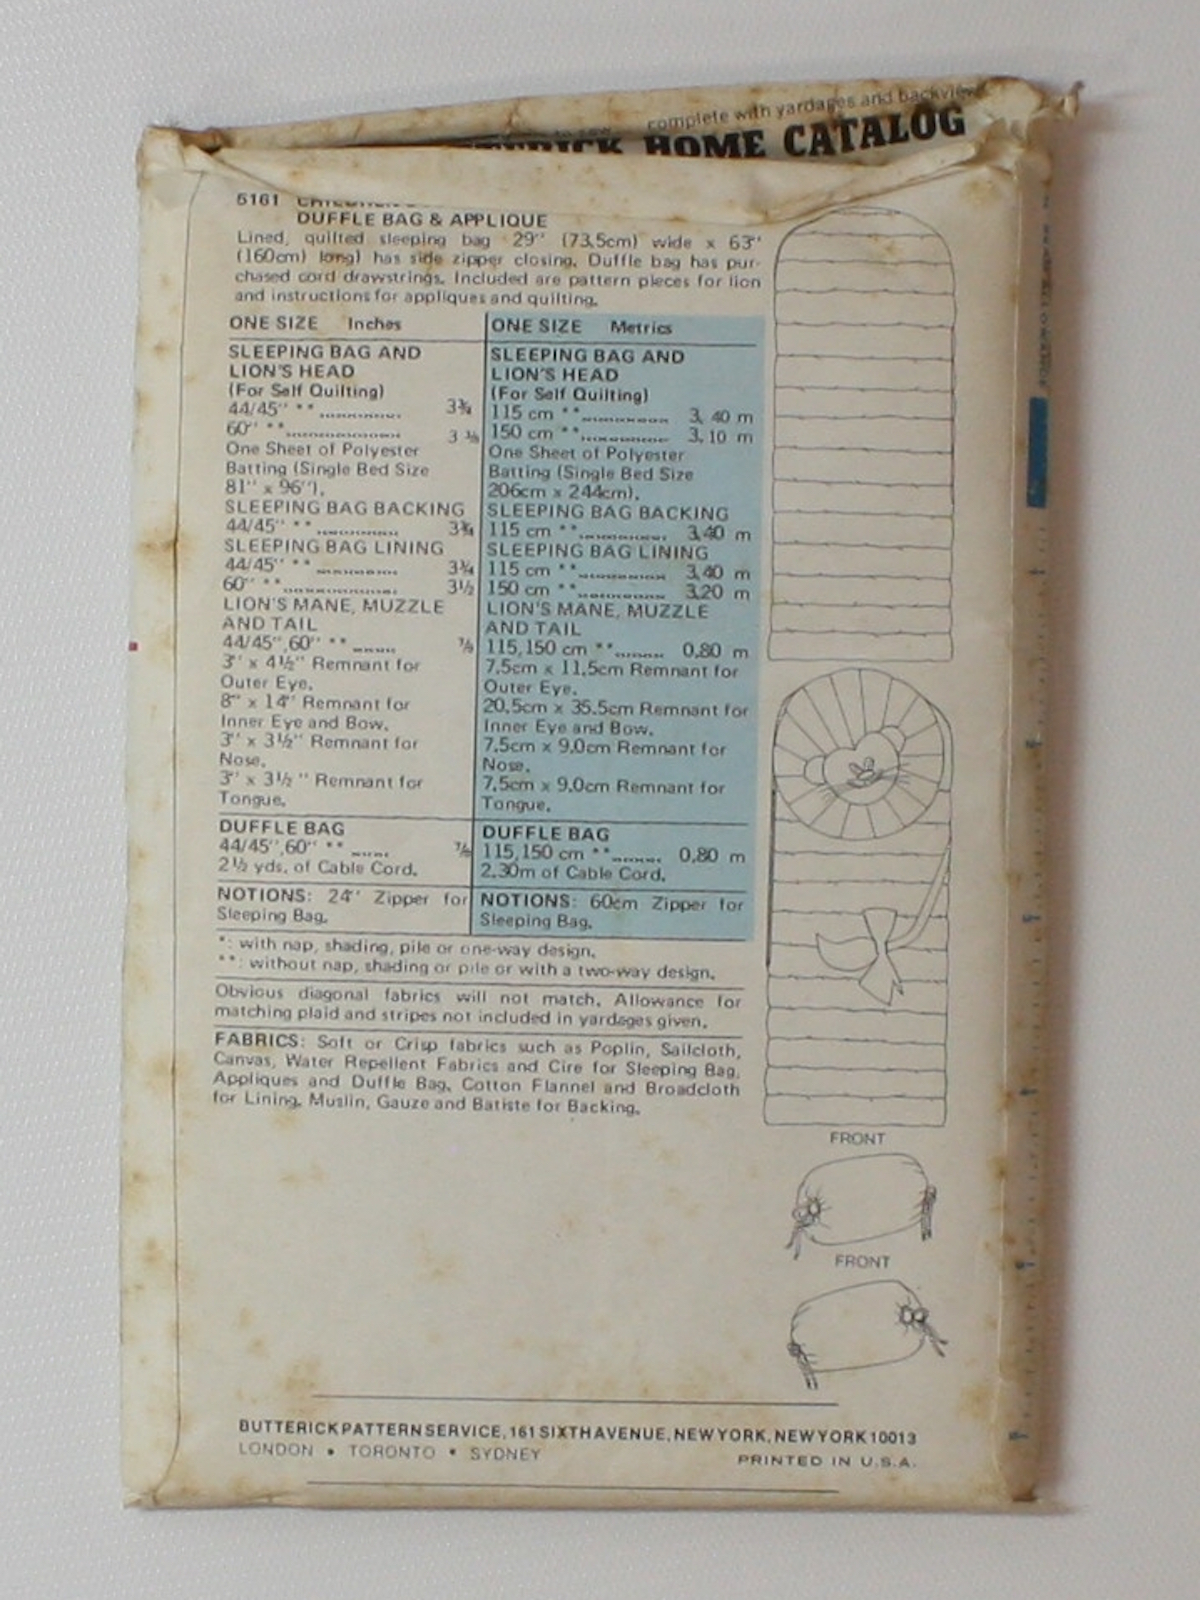 complete with yardages and backview
HOME CATALOG
5161
DUFFLE BAG & APPLIQUE
Lined, quilted sleeping bag 29" (73.5cm) wide x 63"
(160cm) long) has side zipper closing. Duffle bag has pur-
chased cord drawstrings. Included are pattern pieces for lion
and instructions for appliques and quilting.
ONE SIZE Inches
SLEEPING BAG AND
LION'S HEAD
(For Self Quilting)
44/45" ** ............ 3¾
60" ** ............ 3
One Sheet of Polyester
Batting (Single Bed Size
81" x 96").
SLEEPING BAG BACKING
44/45" ** ............ 3¾
SLEEPING BAG LINING
44/45" ** ............ 3¾
60" ** ............ 3½
LION'S MANE, MUZZLE
AND TAIL
44/45",60" ** ...... ⅞
3" x 4½" Remnant for
Outer Eye.
8" x 14" Remnant for
Inner Eye and Bow.
3" x 3½" Remnant for
Nose.
3" x 3½" Remnant for
Tongue.
DUFFLE BAG
44/45",60" ** ...... ⅞
2½ yds. of Cable Cord.
NOTIONS: 24" Zipper for
Sleeping Bag.
ONE SIZE Metrics
SLEEPING BAG AND
LION'S HEAD
(For Self Quilting)
115 cm ** ............ 3.40 m
150 cm ** ............ 3.10 m
One Sheet of Polyester
Batting (Single Bed Size
206cm x 244cm).
SLEEPING BAG BACKING
115 cm ** ............ 3.40 m
SLEEPING BAG LINING
115 cm ** ............ 3.40 m
150 cm ** ............ 3.20 m
LION'S MANE, MUZZLE
AND TAIL
115,150 cm ** ....... 0.80 m
7.5cm x 11.5cm Remnant for
Outer Eye.
20.5cm x 35.5cm Remnant for
Inner Eye and Bow.
7.5cm x 9.0cm Remnant for
Nose.
7.5cm x 9.0cm Remnant for
Tongue.
DUFFLE BAG
115,150 cm ** ....... 0.80 m
2.30m of Cable Cord.
NOTIONS: 60cm Zipper for
Sleeping Bag.
*: with nap, shading, pile or one-way design.
**: without nap, shading or pile or with a two-way design.
Obvious diagonal fabrics will not match. Allowance for
matching plaid and stripes not included in yardages given.
FABRICS: Soft or Crisp fabrics such as Poplin, Sailcloth,
Canvas, Water Repellent Fabrics and Cire for Sleeping Bag,
Appliques and Duffle Bag. Cotton Flannel and Broadcloth
for Lining. Muslin, Gauze and Batiste for Backing.
FRONT
FRONT
BUTTERICK PATTERN SERVICE, 161 SIXTH AVENUE, NEW YORK, NEW YORK 10013
LONDON • TORONTO • SYDNEY
PRINTED IN U.S.A.